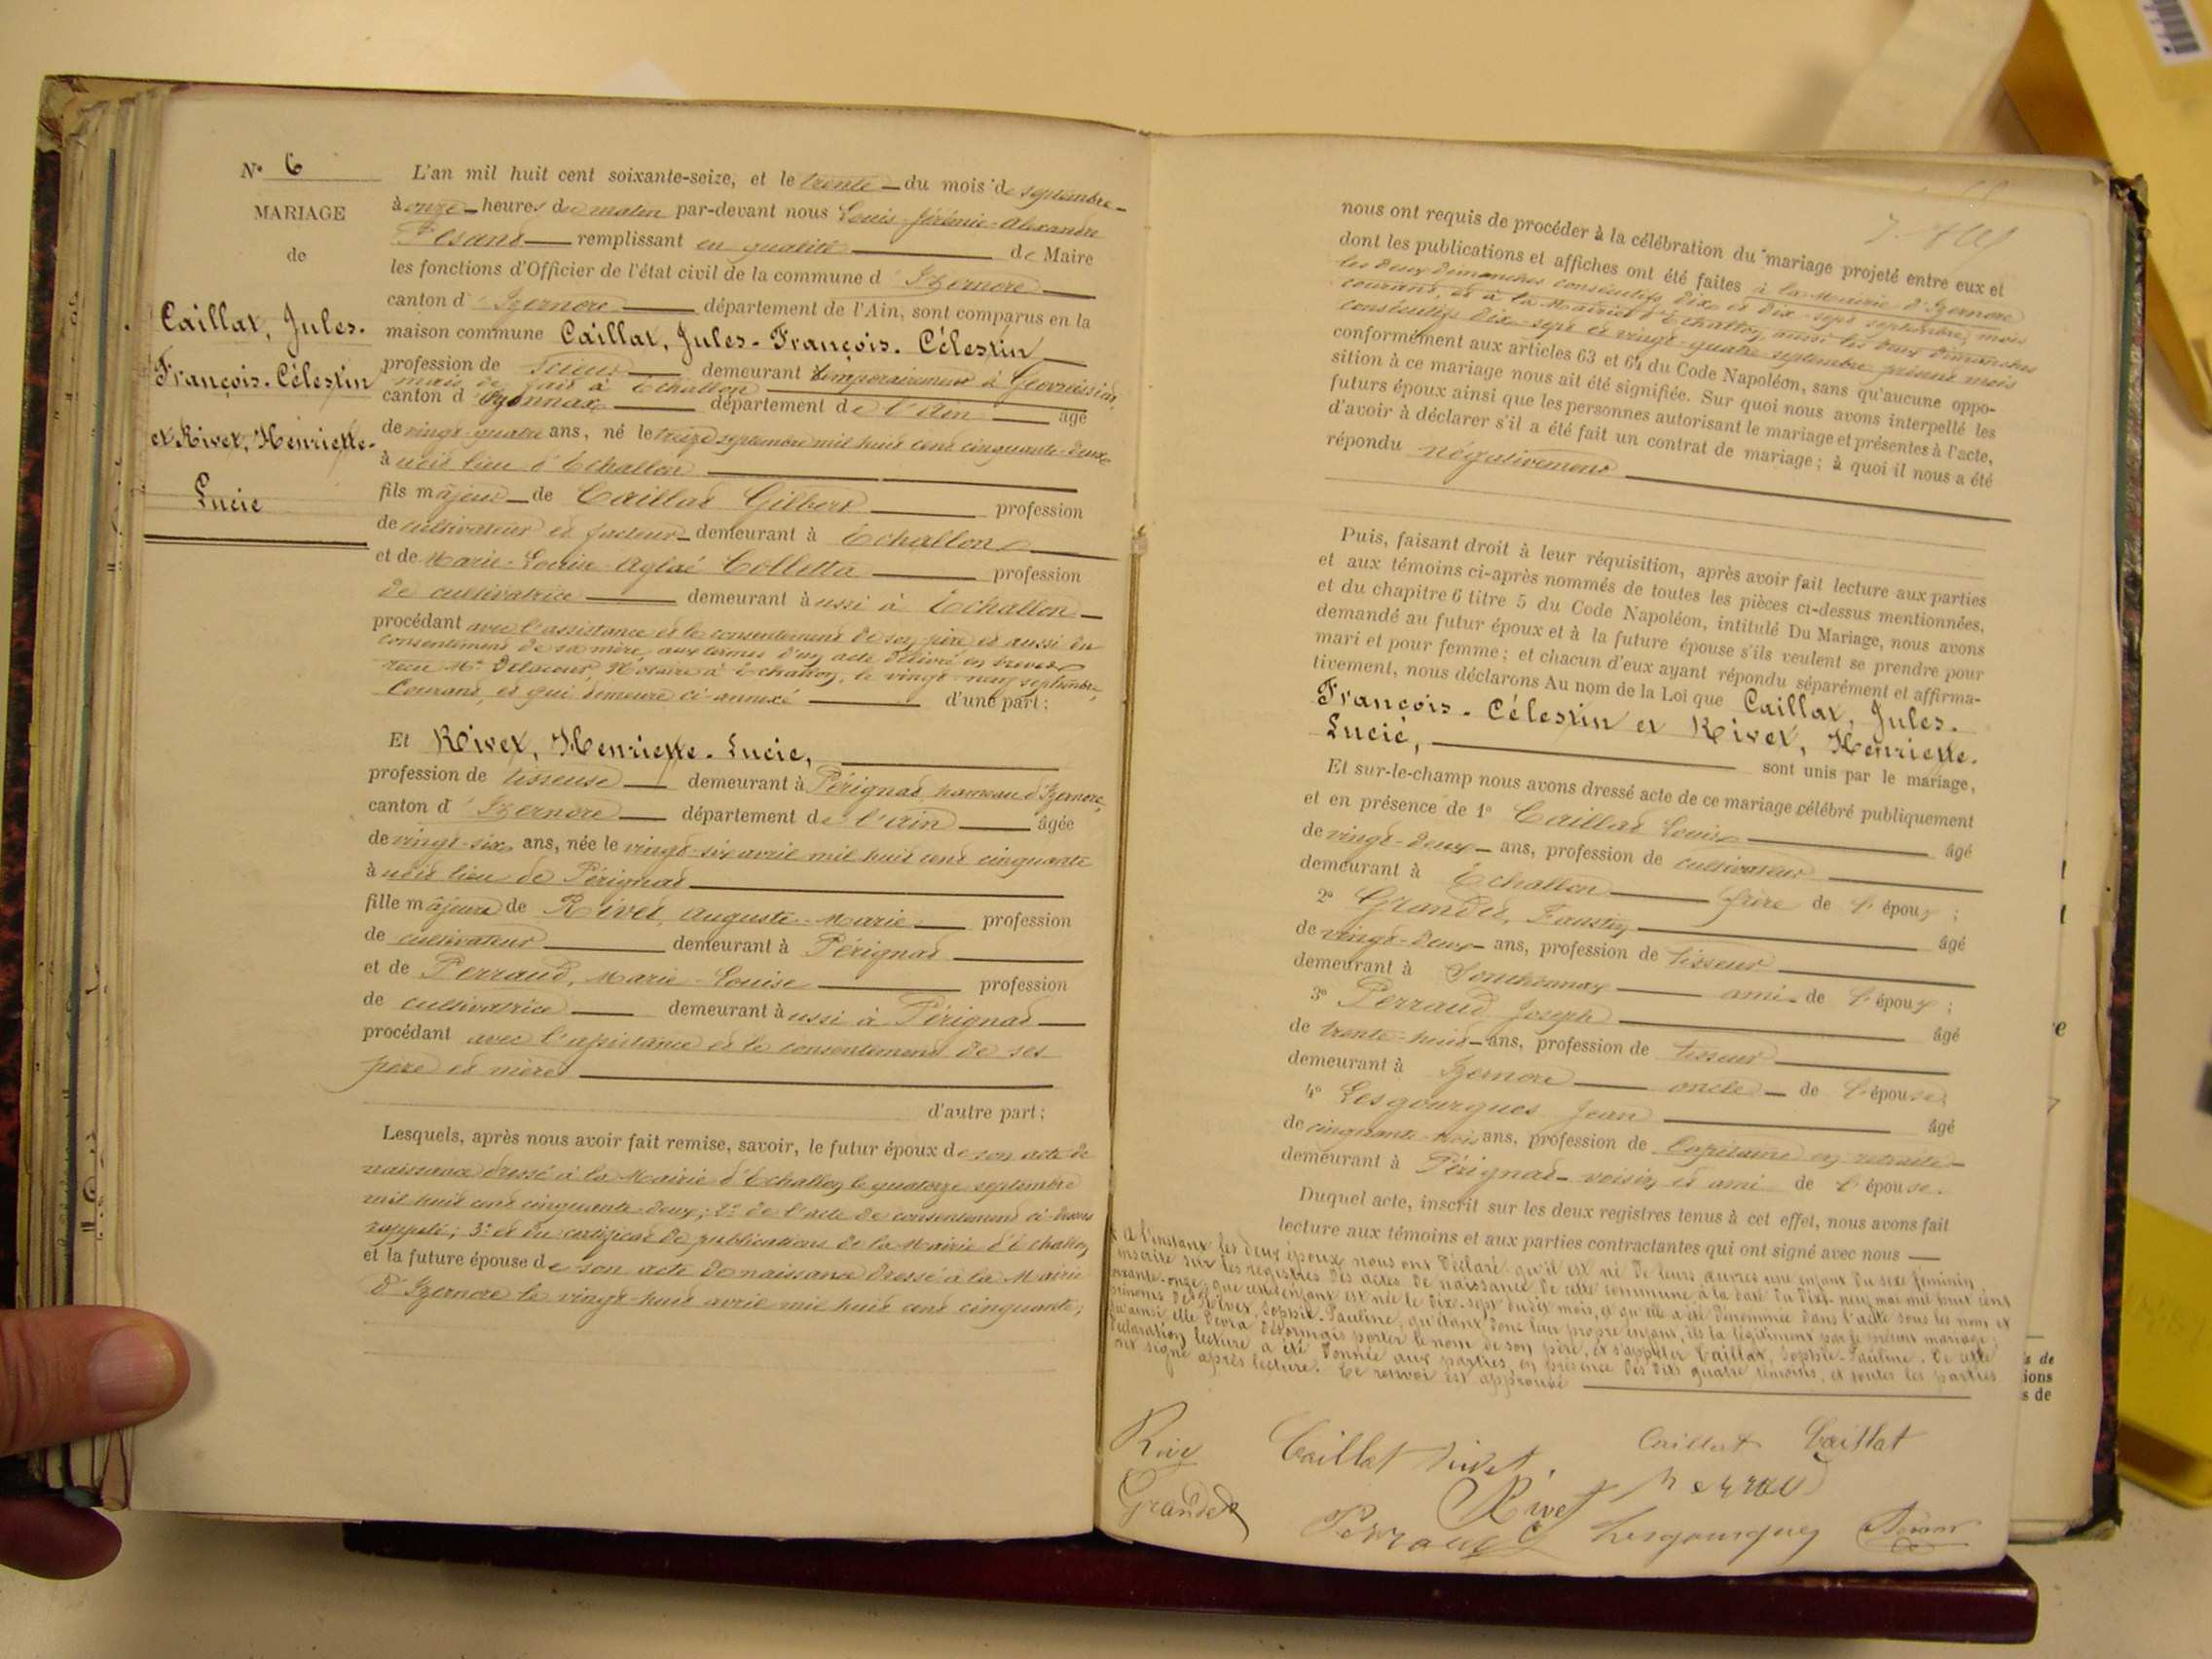 N° 6
MARIAGE
de
Caillat, Jules-
François-Célestin
et Rivet, Henriette-
Lucie
L'an mil huit cent soixante-seize, et le trente du mois de septembre
à onze heures du matin par-devant nous Louis-Jérémie-Alexandre
remplissant en qualité de Maire
les fonctions d'Officier de l'état civil de la commune d'Izernore
canton d'Izernore département de l'Ain, sont comparus en la
maison commune Caillat, Jules-François-Célestin
profession de scieur demeurant temporairement à Géovreissiat,
mais de fait à Echallon
canton d'Oyonnax département de l'Ain âgé
de vingt-quatre ans, né le treize septembre mil huit cent cinquante-deux
à lieu d'Echallon
fils majeur de Caillat Gilbert profession
de cultivateur et facteur demeurant à Echallon
et de Marie-Louise-Aglaé Colletta profession
de cultivatrice demeurant aussi à Echallon
procédant avec l'assistance et le consentement de son père et aussi du
consentement de sa mère, aux termes d'un acte délivré en brevet
reçu Me Delacour, Notaire à Echallon, le vingt-neuf septembre
courant, et qui demeure ci-annexé d'une part;
Et Rivet, Henriette-Lucie,
profession de tisseuse demeurant à Pérignat, hameau d'Izernore,
canton d'Izernore département de l'Ain âgée
de vingt-six ans, née le vingt-six avril mil huit cent cinquante
à lieu de Pérignat
fille majeure de Rivet, Auguste-Marie profession
de cultivateur demeurant à Pérignat
et de Perraud, Marie-Louise profession
de cultivatrice demeurant aussi à Pérignat
procédant avec l'assistance et le consentement de ses
père et mère
d'autre part;
Lesquels, après nous avoir fait remise, savoir, le futur époux de son acte de
naissance dressé à la Mairie d'Echallon le quatorze septembre
mil huit cent cinquante-deux; 2° de l'acte de consentement ci-dessus
rappelé; 3° et du certificat de publications de la Mairie d'Echallon
et la future épouse de son acte de naissance dressé à la Mairie
d'Izernore le vingt-huit avril mil huit cent cinquante;
nous ont requis de procéder à la célébration du mariage projeté entre eux et
dont les publications et affiches ont été faites à la Mairie d'Izernore
les deux dimanches consécutifs dix et dix-sept septembre, mois
courant, et à la Mairie d'Echallon, aussi les deux dimanches
consécutifs dix-sept et vingt-quatre septembre présent mois
conformément aux articles 63 et 64 du Code Napoléon, sans qu'aucune oppo-
sition à ce mariage nous ait été signifiée. Sur quoi nous avons interpellé les
futurs époux ainsi que les personnes autorisant le mariage et présentes à l'acte,
d'avoir à déclarer s'il a été fait un contrat de mariage; à quoi il nous a été
répondu négativement
Puis, faisant droit à leur réquisition, après avoir fait lecture aux parties
et aux témoins ci-après nommés de toutes les pièces ci-dessus mentionnées,
et du chapitre 6 titre 5 du Code Napoléon, intitulé Du Mariage, nous avons
demandé au futur époux et à la future épouse s'ils veulent se prendre pour
mari et pour femme; et chacun d'eux ayant répondu séparément et affirma-
tivement, nous déclarons Au nom de la Loi que Caillat, Jules-
François-Célestin et Rivet, Henriette-
Lucie, sont unis par le mariage,
Et sur-le-champ nous avons dressé acte de ce mariage célébré publiquement
et en présence de 1° Caillat Louis âgé
de vingt-deux ans, profession de cultivateur
demeurant à Echallon frère de l'époux;
2° Grandet, Faustin âgé
de vingt-deux ans, profession de tisseur
demeurant à Sonthonnax ami de l'époux;
3° Perraud Joseph âgé
de trente-huit ans, profession de tisseur
demeurant à Izernore oncle de l'épouse,
4° Lesgourgues Jean âgé
de cinquante-trois ans, profession de Capitaine en retraite
demeurant à Pérignat voisin et ami de l'épouse.
Duquel acte, inscrit sur les deux registres tenus à cet effet, nous avons fait
lecture aux témoins et aux parties contractantes qui ont signé avec nous
A l'instant les deux époux nous ont déclaré qu'il est né de leurs œuvres une enfant du sexe féminin
inscrite sur les registres des actes de naissance de cette commune à la date du dix-neuf mai mil huit cent
soixante-onze, que cette enfant est née le dix-sept dudit mois, et qu'elle a été dénommée dans l'acte sous les nom et
prénoms de Rivet, Sophie-Pauline, qu'étant donc leur propre enfant, ils la légitiment par le présent mariage,
qu'ainsi elle devra désormais porter le nom de son père, et s'appeler Caillat, Sophie-Pauline. De cette
déclaration, lecture a été donnée aux parties, en présence des dits quatre témoins, et toutes les parties
ont signé après lecture. Ce renvoi est approuvé
Caillat Rivet Caillat Caillat
Grandet Rivet Perraud
Perraud Lesgourgues